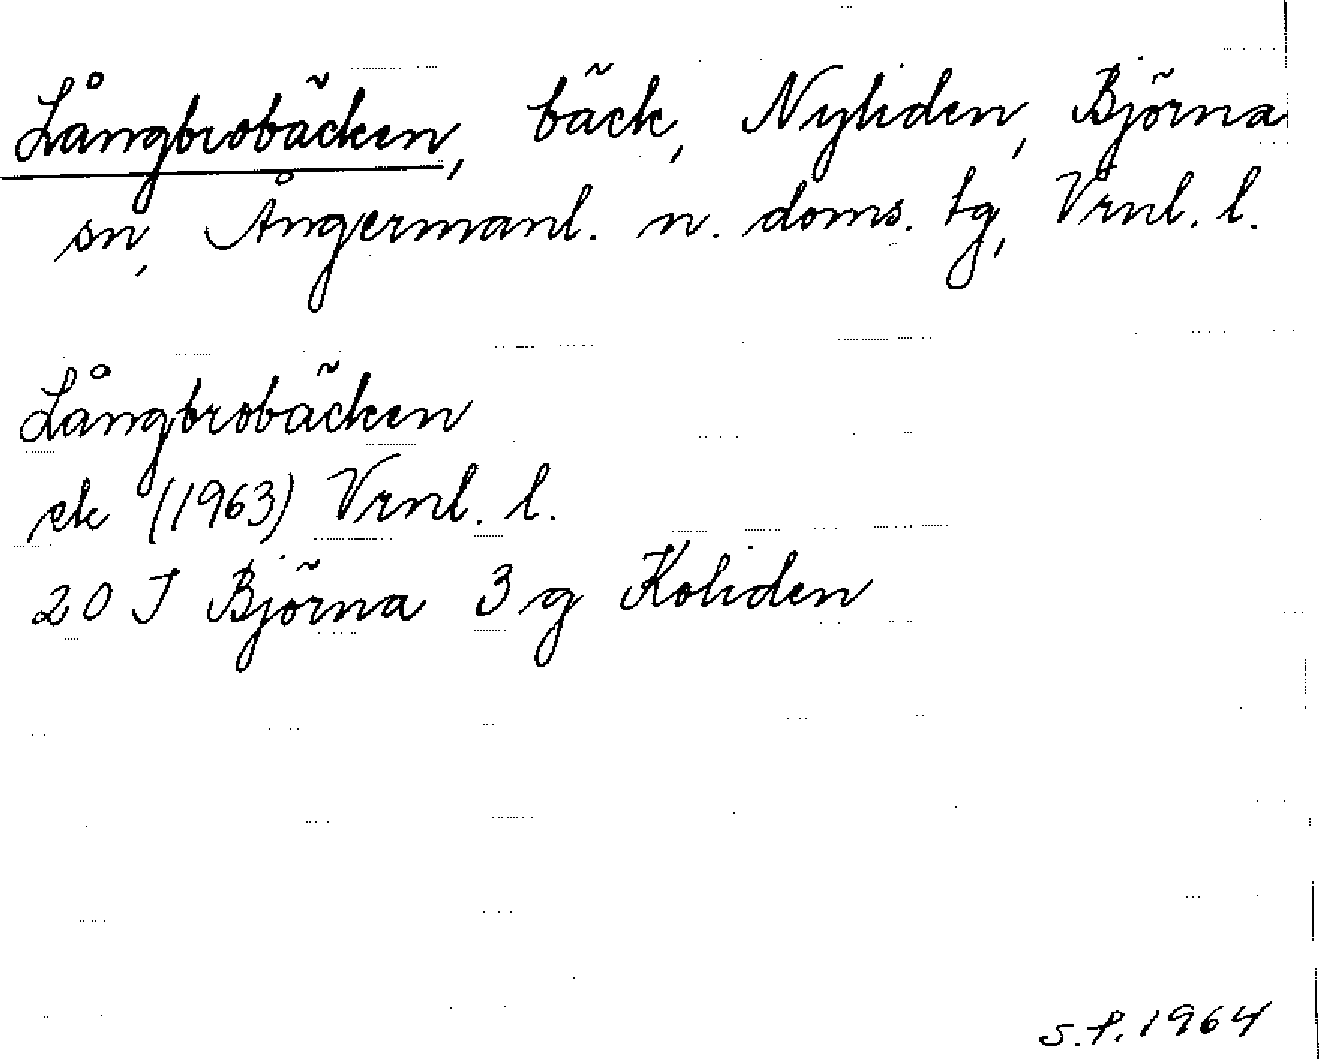 Långbrobäcken, bäck, Nyliden, Björna
sn, Ångermanl. n. doms. tg, Vrnl. l.
Långbrobäcken
ek (1963) Vrnl. l.
20 J Björna 3 g Koliden
S.P. 1964